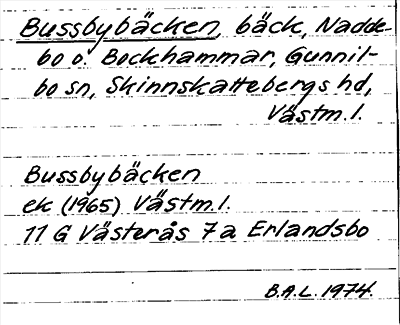 Bussbybäcken, bäck, Nadde-
bo o. Bockhammar, Gunnil-
bo sn, Skinnskattebergs hd,
Västm. l.
Bussbybäcken
ek (1965) Västm. l.
11 G Västerås 7a Erlandsbo
B.A.L. 1974.